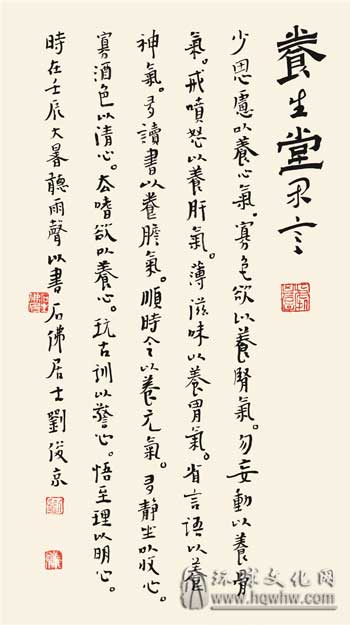 養生堂言
少思慮以養心氣。寡色欲以養腎氣。勿妄動以養骨
氣。戒嗔怒以養肝氣。薄滋味以養胃氣。省言語以養
神氣。多讀書以養膽氣。順時令以養元氣。多静坐以收心。
寡酒色以清心。去嗜欲以養心。玩古訓以警心。悟至理以明心。
時在壬辰大暑聽雨聲以書石佛居士劉俊京
环球文化网
www.hqwhw.com